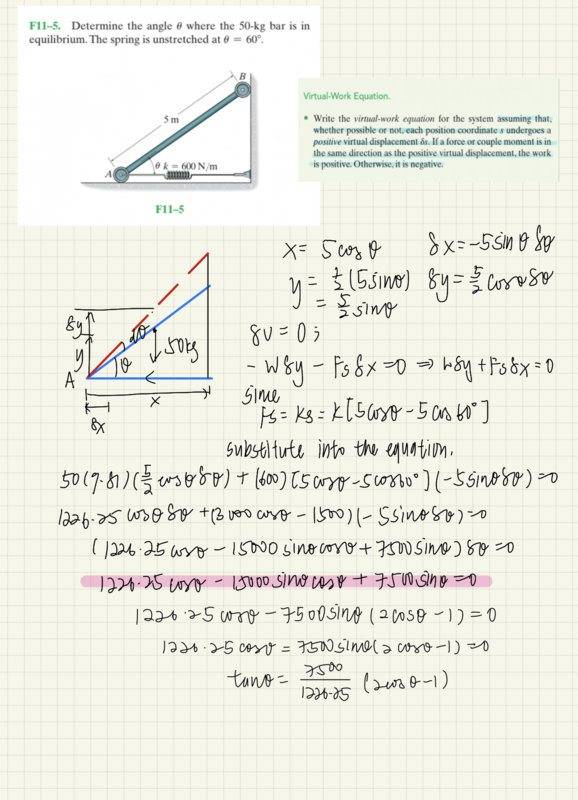 F11–5. Determine the angle θ where the 50-kg bar is in
equilibrium. The spring is unstretched at θ = 60°.
B
5 m
θ k = 600 N/m
A
F11–5
Virtual-Work Equation.
• Write the virtual-work equation for the system assuming that,
whether possible or not, each position coordinate s undergoes a
positive virtual displacement δs. If a force or couple moment is in
the same direction as the positive virtual displacement, the work
is positive. Otherwise, it is negative.
x = 5 cos θ δx = -5 sin θ δθ
y = 1/2 (5 sinθ) δy = 5/2 cosθ δθ
= 5/2 sinθ
δy
y
dθ
θ
50kg
A
x
δx
δU = 0 ;
- Wδy - Fs δx = 0 ⇒ Wδy + Fs δx = 0
since
Fs = ks = k[5cosθ - 5cos60°]
substitute into the equation.
50(9.81)(5/2 cosθ δθ) + (600)[5cosθ - 5cos60°](-5sinθ δθ) = 0
1226.25 cosθ δθ + (3000 cosθ - 1500)(-5sinθ δθ) = 0
(1226.25 cosθ - 15000 sinθ cosθ + 7500 sinθ) δθ = 0
1226.25 cosθ - 15000 sinθ cosθ + 7500 sinθ = 0
1226.25 cosθ - 7500 sinθ (2cosθ - 1) = 0
1226.25 cosθ = 7500 sinθ (2 cosθ - 1) = 0
tanθ = 7500/1226.25 (2cosθ - 1)